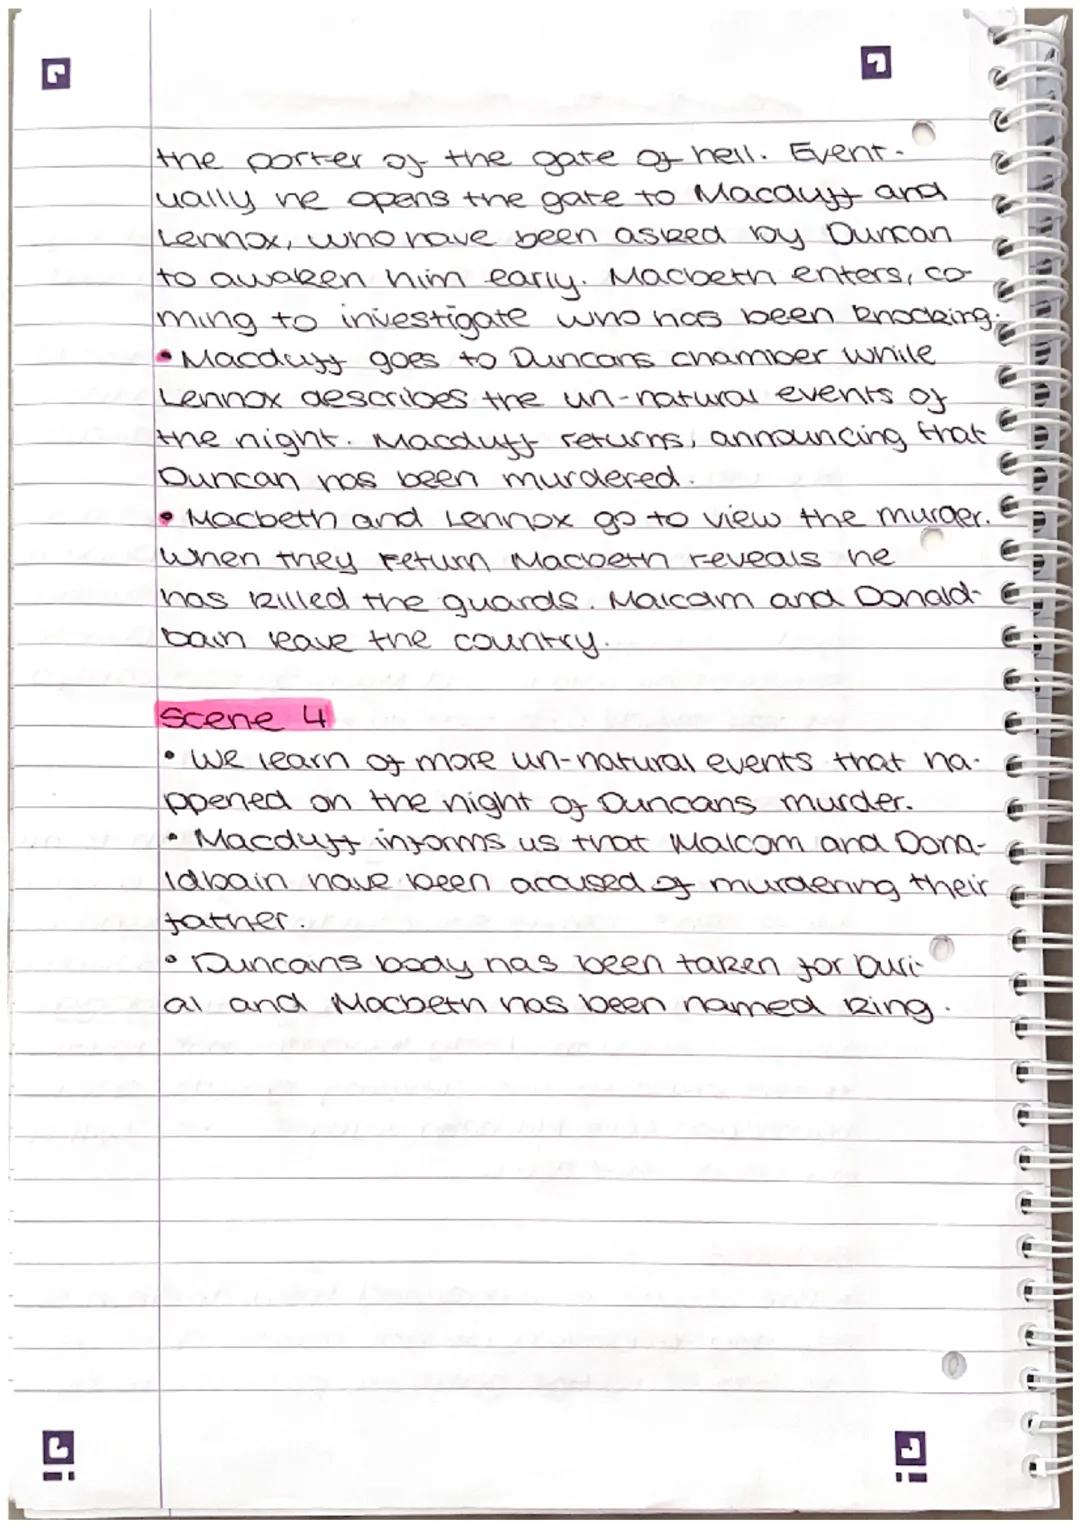 the porter of the gate of hell. Event-
ually he opens the gate to Macduff and
Lennox, who have been asked by Duncan
to awaken him early. Macbeth enters, co-
ming to investigate who has been knocking.
• Macduff goes to Duncans chamber while
Lennox describes the un-natural events of
the night. Macduff returns, announcing that
Duncan has been murdered.
• Macbeth and Lennox go to view the murder.
When they return Macbeth reveals he
has killed the guards. Malcom and Donald-
bain leave the country.
Scene 4
• We learn of more un-natural events that ha-
ppened on the night of Duncans murder.
• Macduff informs us that Malcom and Dona-
ldbain have been accused of murdering their
father.
• Duncans body has been taken for buri-
al and Macbeth has been named king.